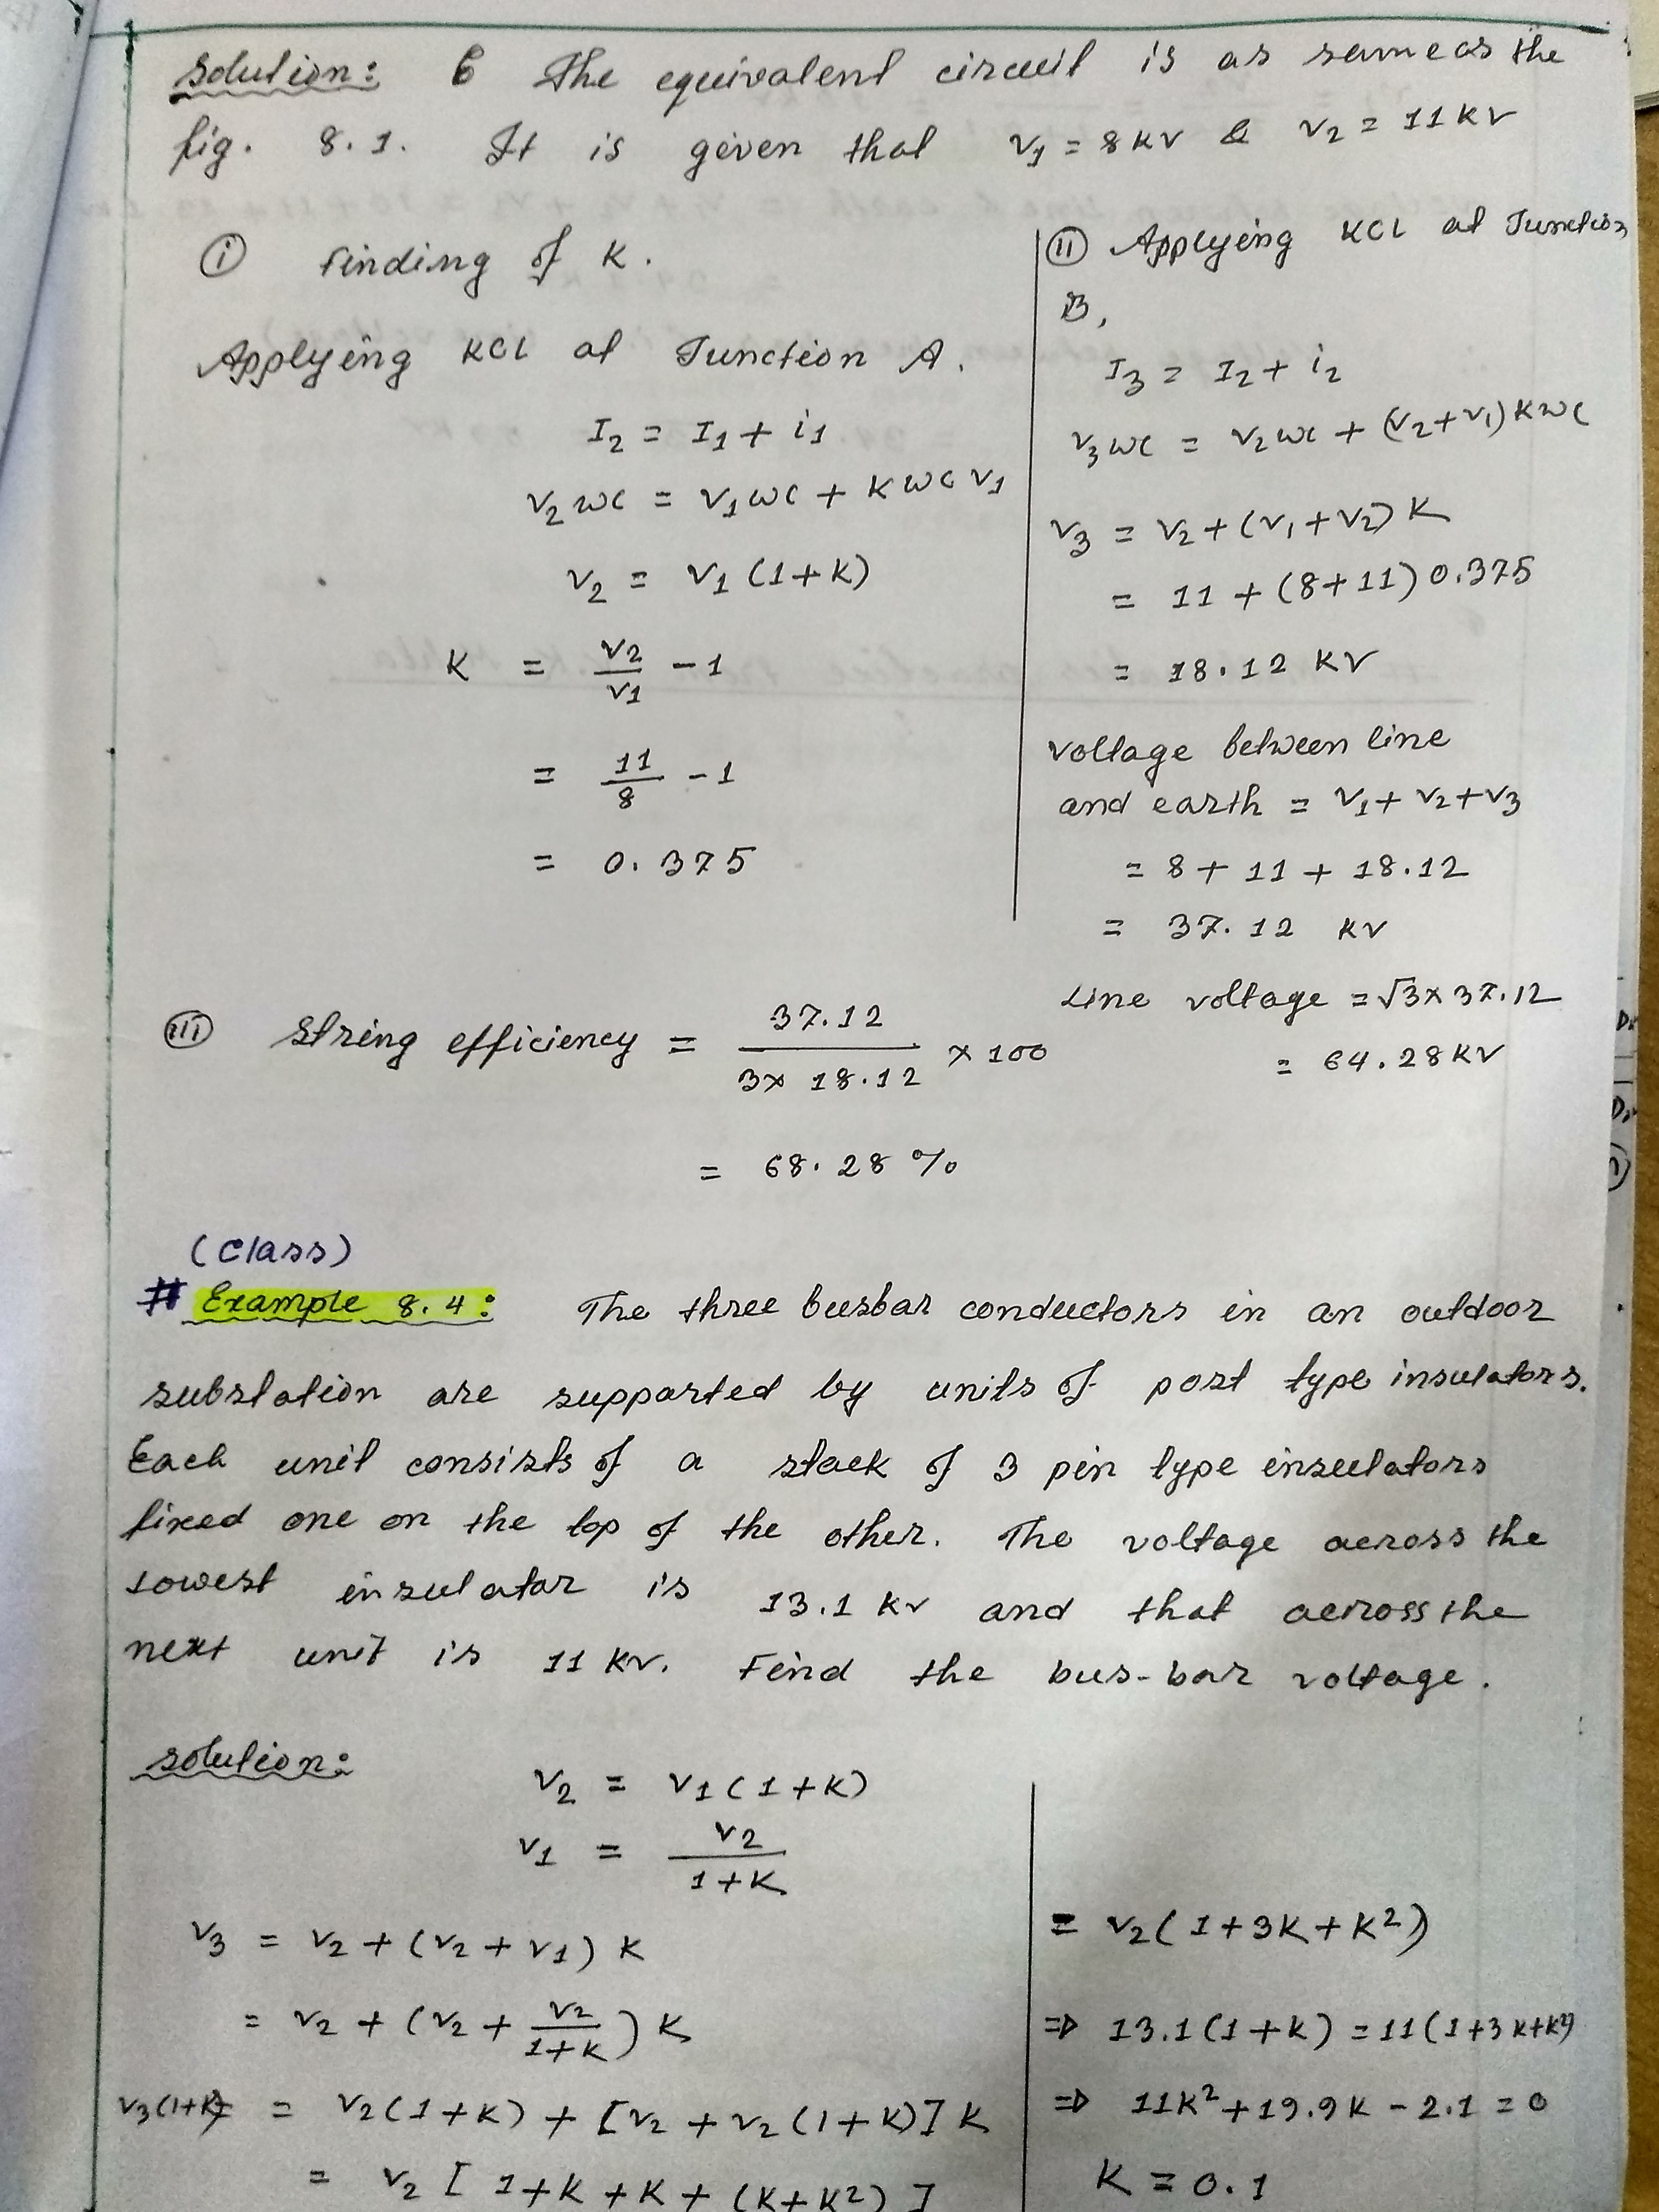 Solution: The equivalent circuit is as same as the
fig. 8.1. It is given that V1 = 8 KV & V2 = 11 KV
(i) Finding of K.
Applying KCL at Junction A.
I2 = I1 + i1
V2 ωC = V1 ωC + K ωC V1
V2 = V1 (1+K)
K = V2/V1 - 1
= 11/8 - 1
= 0.375
(ii) Applying KCL at Junction
B,
I3 = I2 + i2
V3 ωC = V2 ωC + (V2+V1) K ωC
V3 = V2 + (V1+V2) K
= 11 + (8+11) 0.375
= 18.12 KV
voltage between line
and earth = V1 + V2 + V3
= 8 + 11 + 18.12
= 37.12 KV
Line voltage = √3 x 37.12
= 64.28 KV
(iii) String efficiency = 37.12 / 3x 18.12 x 100
= 68.28 %
(Class)
# Example 8.4: The three busbar conductors in an outdoor
substation are supported by units of post type insulators.
Each unit consists of a stack of 3 pin type insulators
fixed one on the top of the other. The voltage across the
lowest insulator is 13.1 KV and that across the
next unit is 11 KV. Find the bus-bar voltage.
Solution:
V2 = V1 (1+K)
V1 = V2 / 1+K
V3 = V2 + (V2 + V1) K
= V2 + (V2 + V2/1+K) K
V3(1+K) = V2(1+K) + [V2 + V2(1+K)] K
= V2 [1+K+K+(K+K²)]
= V2 (1+3K+K²)
⇒ 13.1 (1+K) = 11 (1+3K+K²)
⇒ 11K² + 19.9K - 2.1 = 0
K = 0.1